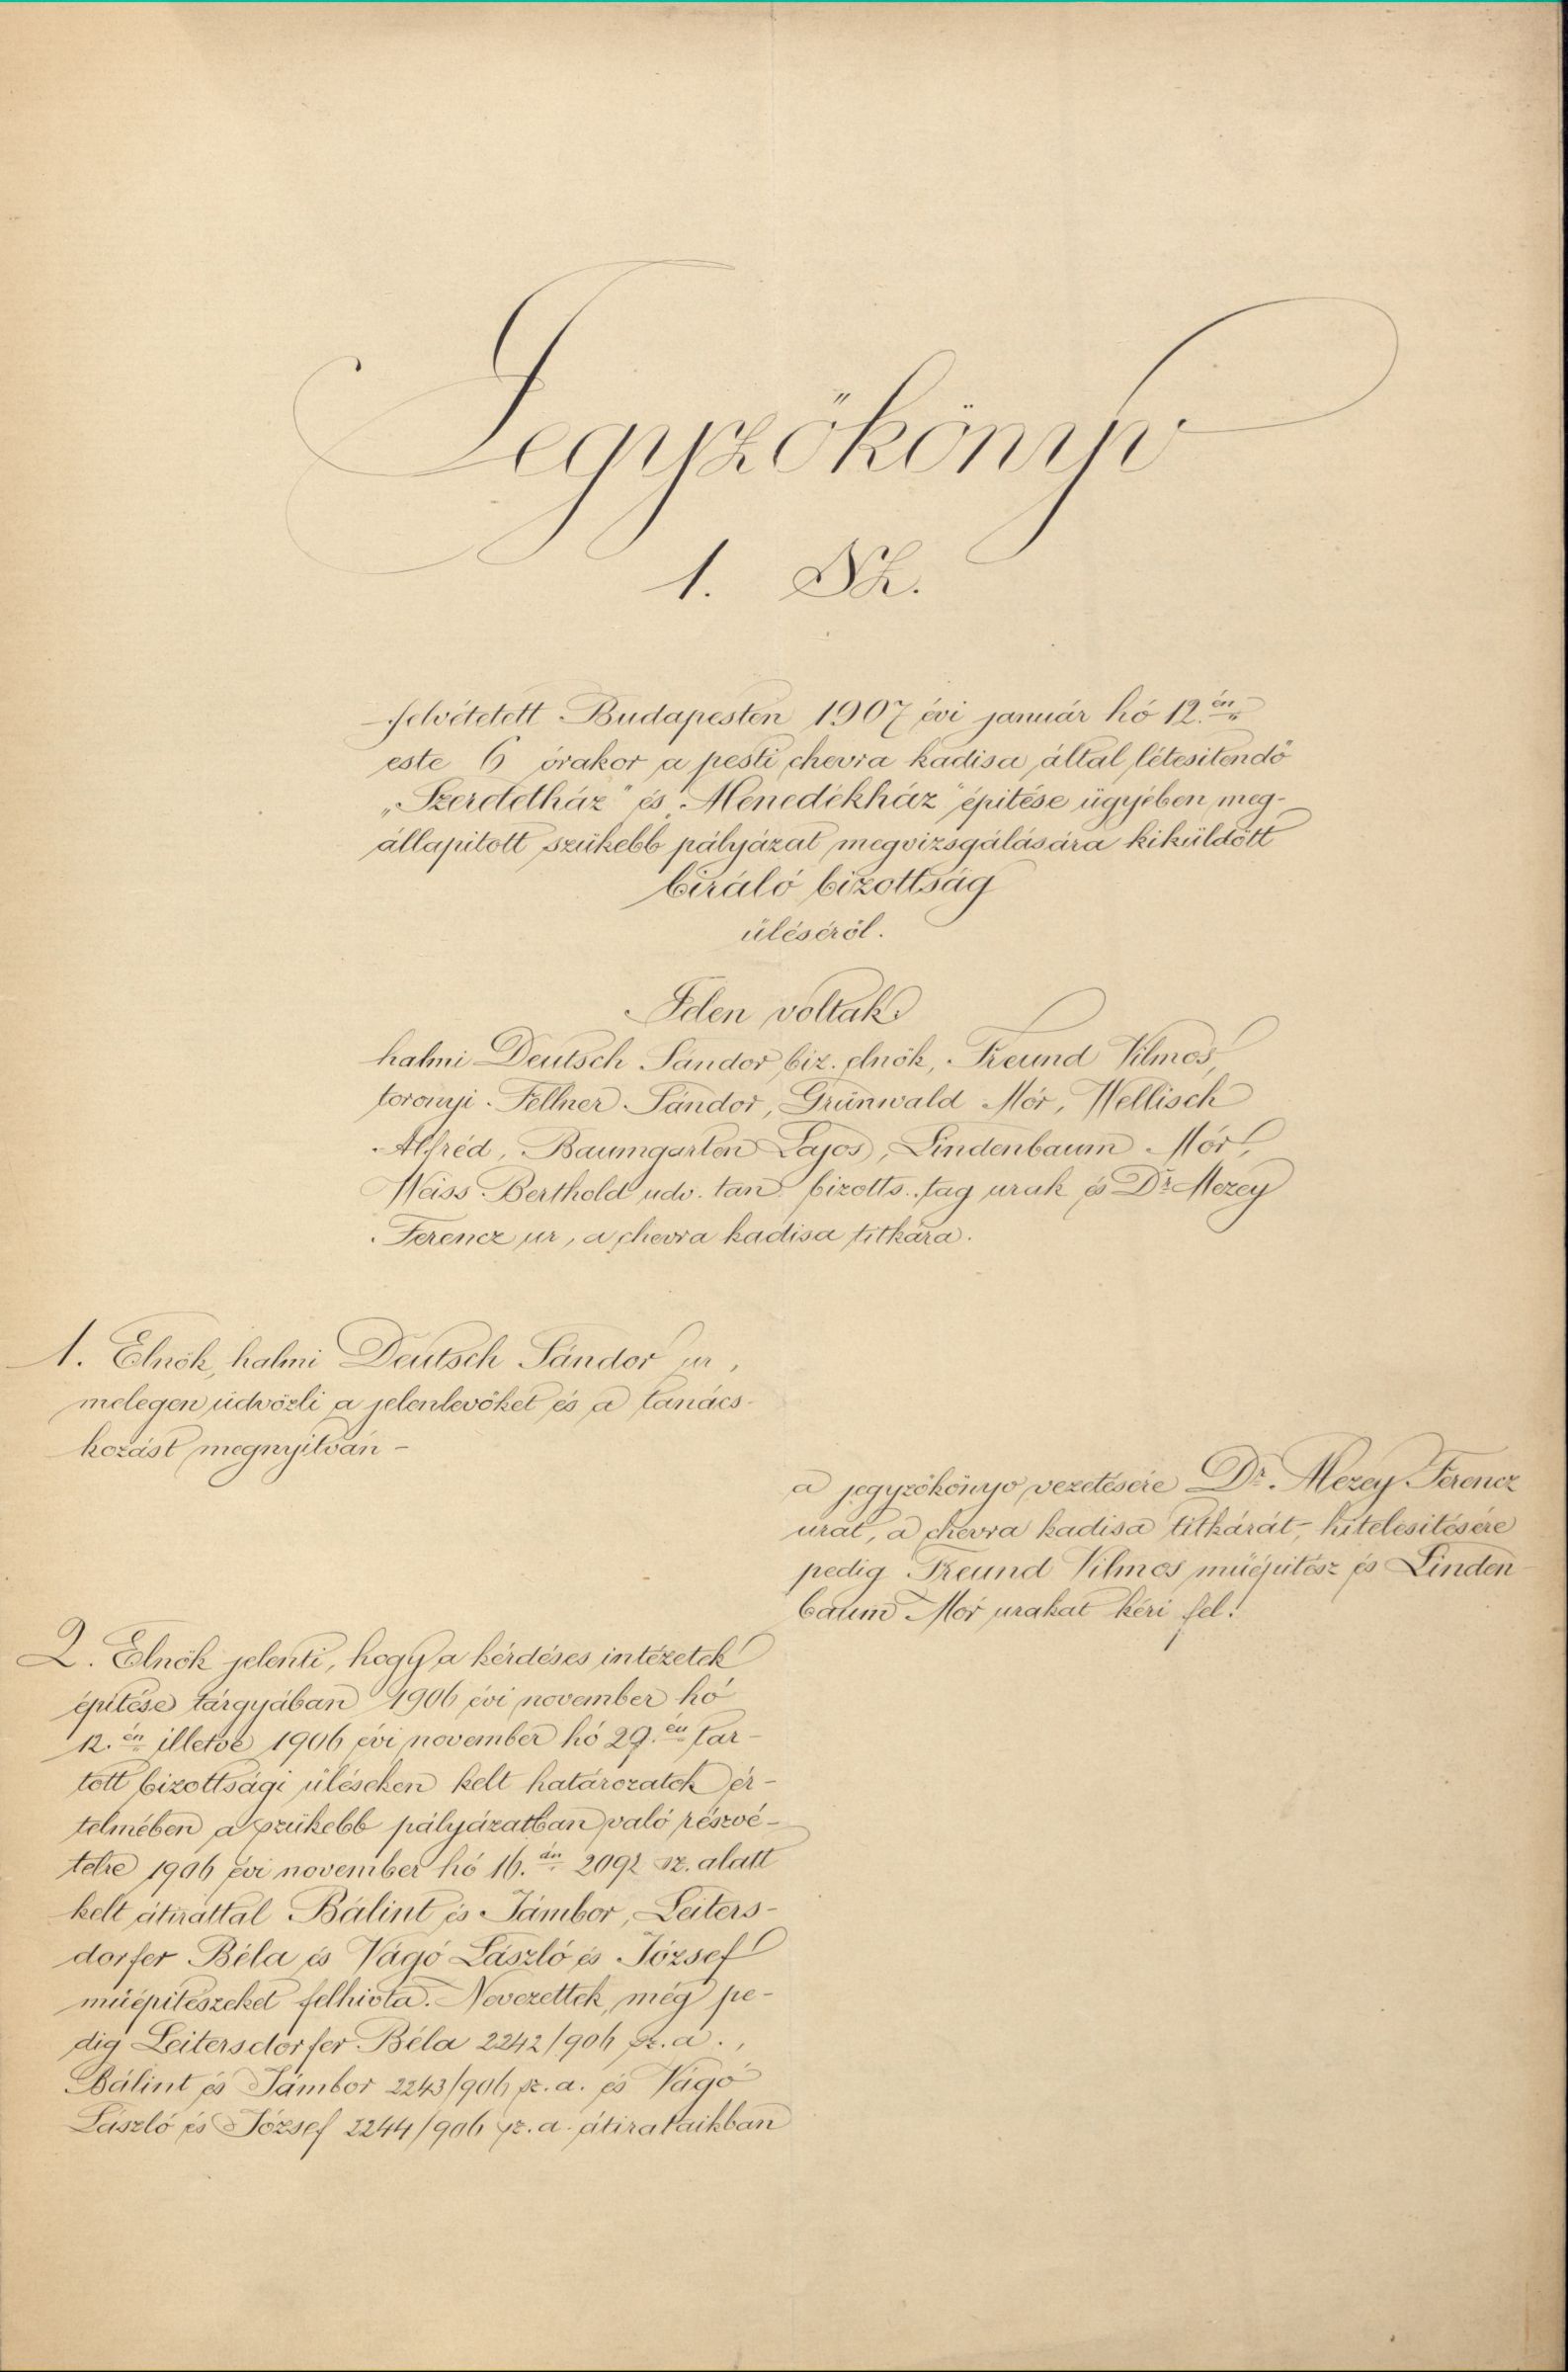 Jegyzőkönyv
1. Sz.
felvétetett Budapesten 1907 évi január hó 12.én
este 6 órakor a pesti chevra kadisa által létesitendő
„Szeretetház" és „Menedékház" épitése ügyében meg-
állapitott szükebb pályázat megvizsgálására kiküldött
biráló bizottság
üléséről.
Jelen voltak
halmi Deutsch Sándor, biz. elnök, Freund Vilmos,
toronyi Fellner Sándor, Grünwald Mór, Wellisch
Alfréd, Baumgarten Lajos, Lindenbaum Mór,
Weiss Berthold udv. tan. bizotts. tag urak és Dr Mezey
Ferencz ur, a chevra kadisa titkára.
1. Elnök, halmi Deutsch Sándor ur,
melegen üdvözli a jelenlevőket és a tanács-
kozást megnyitván –
a jegyzőkönyv vezetésére Dr. Mezey Ferencz
urat, a chevra kadisa titkárát, hitelesitésére
pedig Freund Vilmos müépitész és Linden-
baum Mór urakat kéri fel.
2. Elnök jelenti, hogy a kérdéses intézetek
épitése tárgyában 1906 évi november hó
12.én illetve 1906 évi november hó 29.én tar-
tott bizottsági üléseken kelt határozatok ér-
telmében a szükebb pályázatban való részvé-
telre 1906 évi november hó 16.án 2092 sz. alatt
kelt átirattal Bálint és Jámbor, Leiters-
dorfer Béla és Vágó László és József
müépitészeket felhivta. Nevezettek, még pe-
dig Leitersdorfer Béla 2242/906 sz. a.,
Bálint és Jámbor 2243/906 sz. a. és Vágó
László és József 2244/906 sz. a. átirataikban